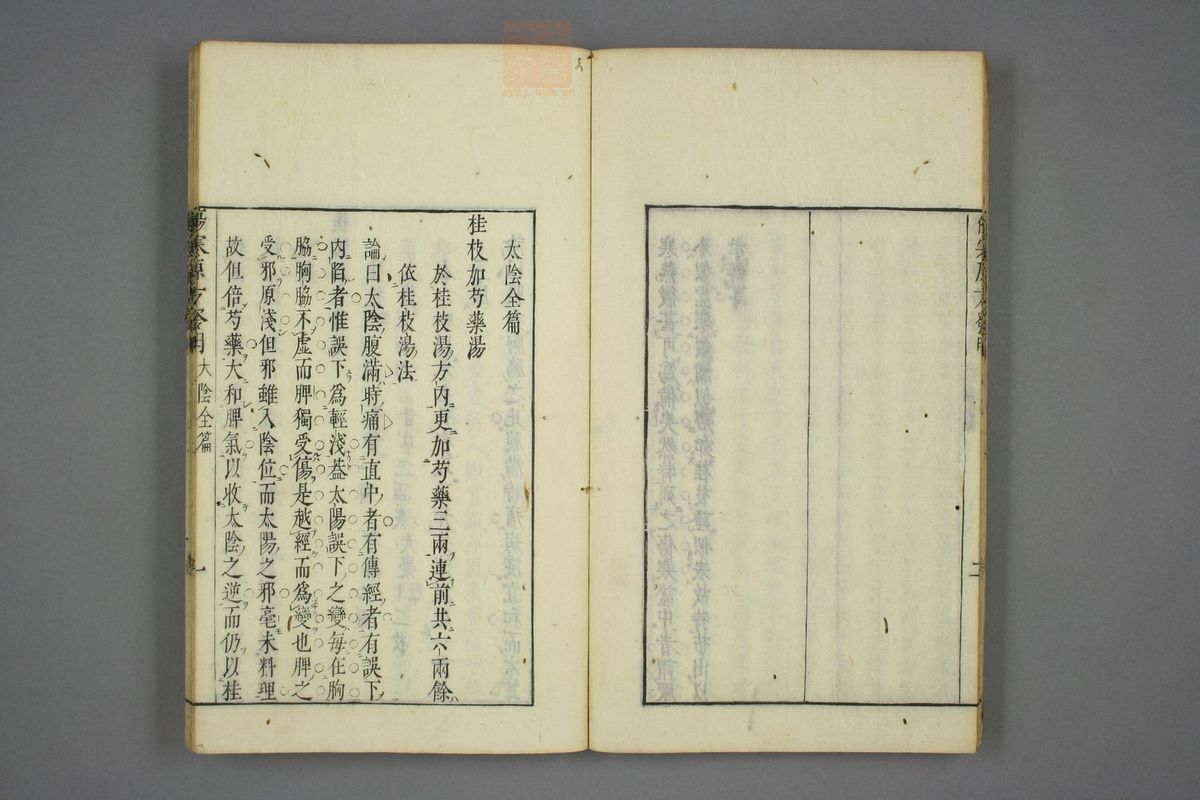 太陰全篇
桂枝加芍藥湯
於桂枝湯方內更加芍藥三兩連前共六兩餘
依桂枝湯法
論曰太陰腹滿時痛有直中者有傳經者有誤下
內陷者惟誤下爲輕淺葢太陽誤下之變每在胸
脇胸脇不虛而脾獨受傷是越經而爲變也脾之
受邪原淺但邪雖入陰位而太陽之邪毫未料理
故但倍芍藥大和脾氣以收太陰之逆而仍以桂
傷寒源方發明
太陰全篇
一
二
zysj.com.cn